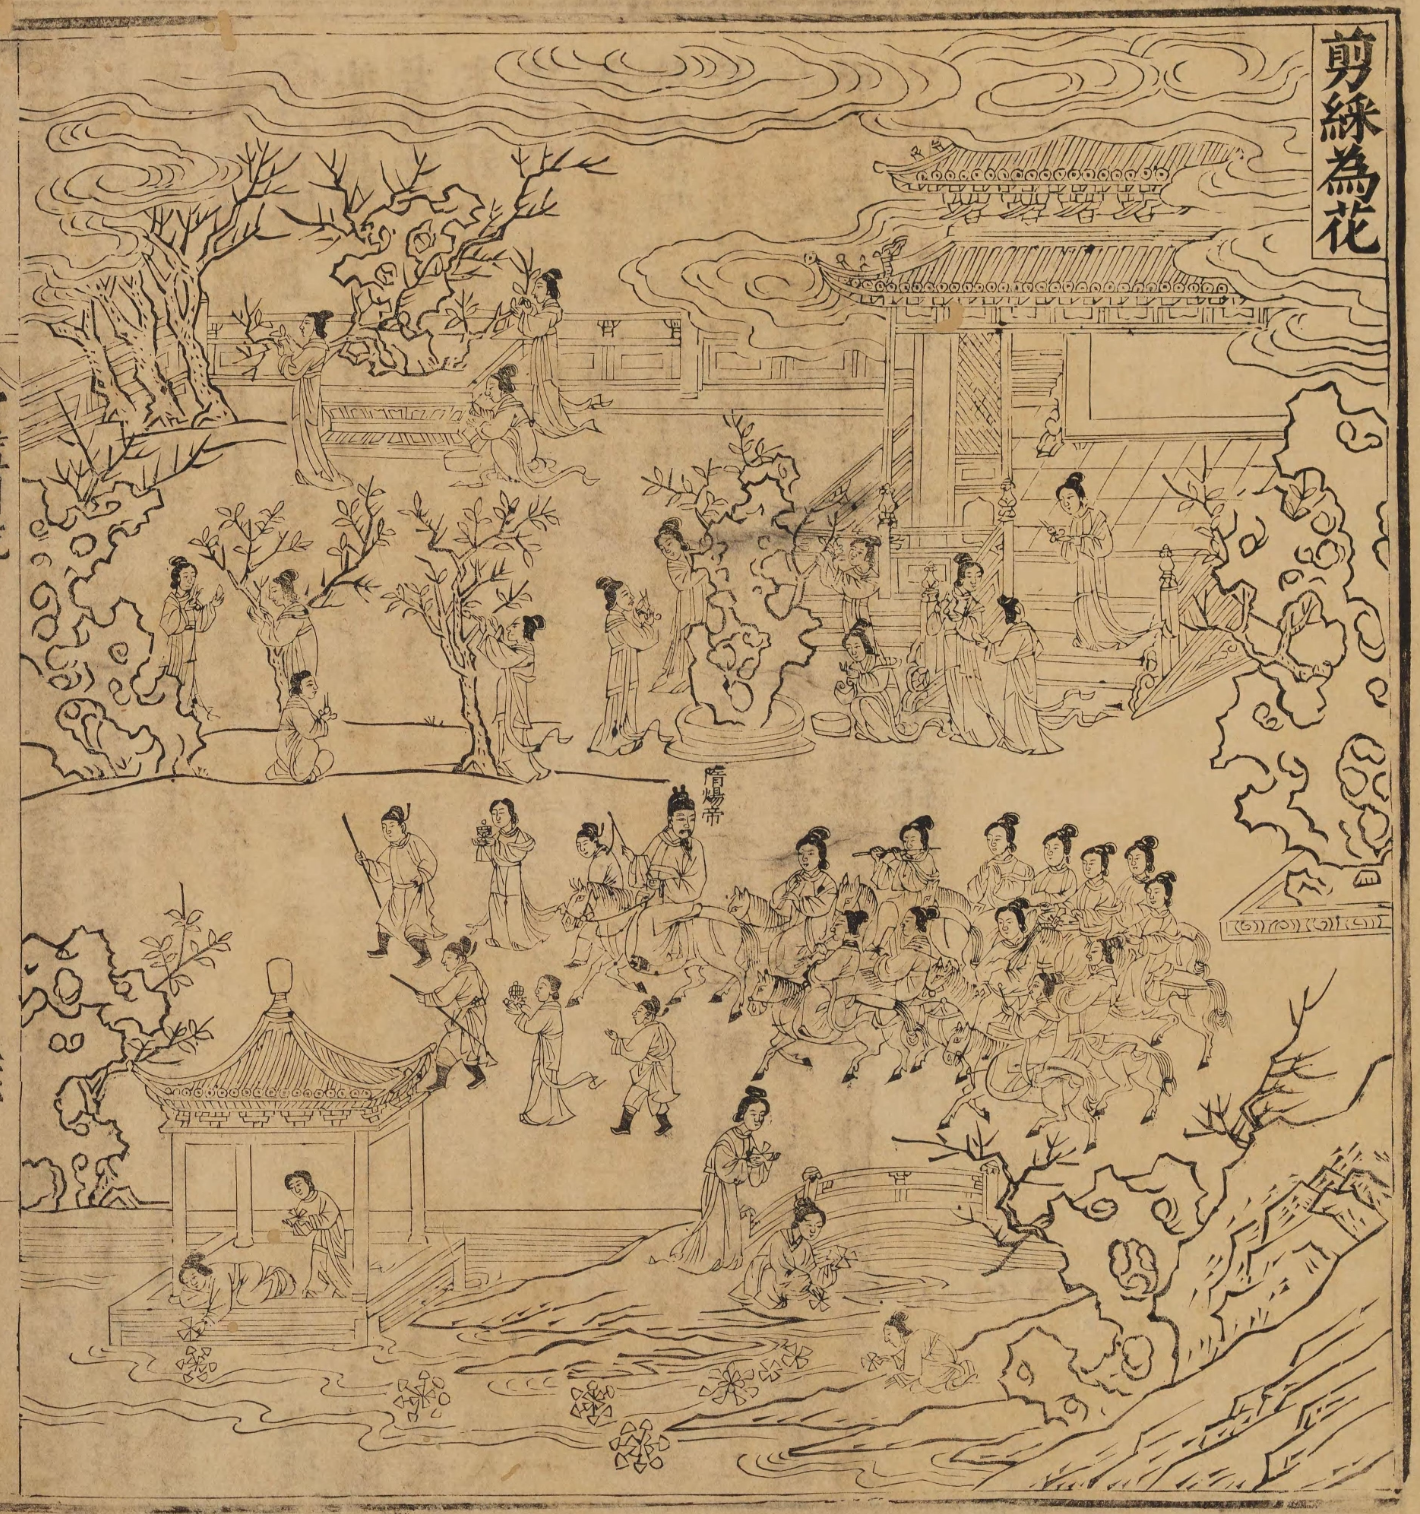 剪綵為花
隋煬帝